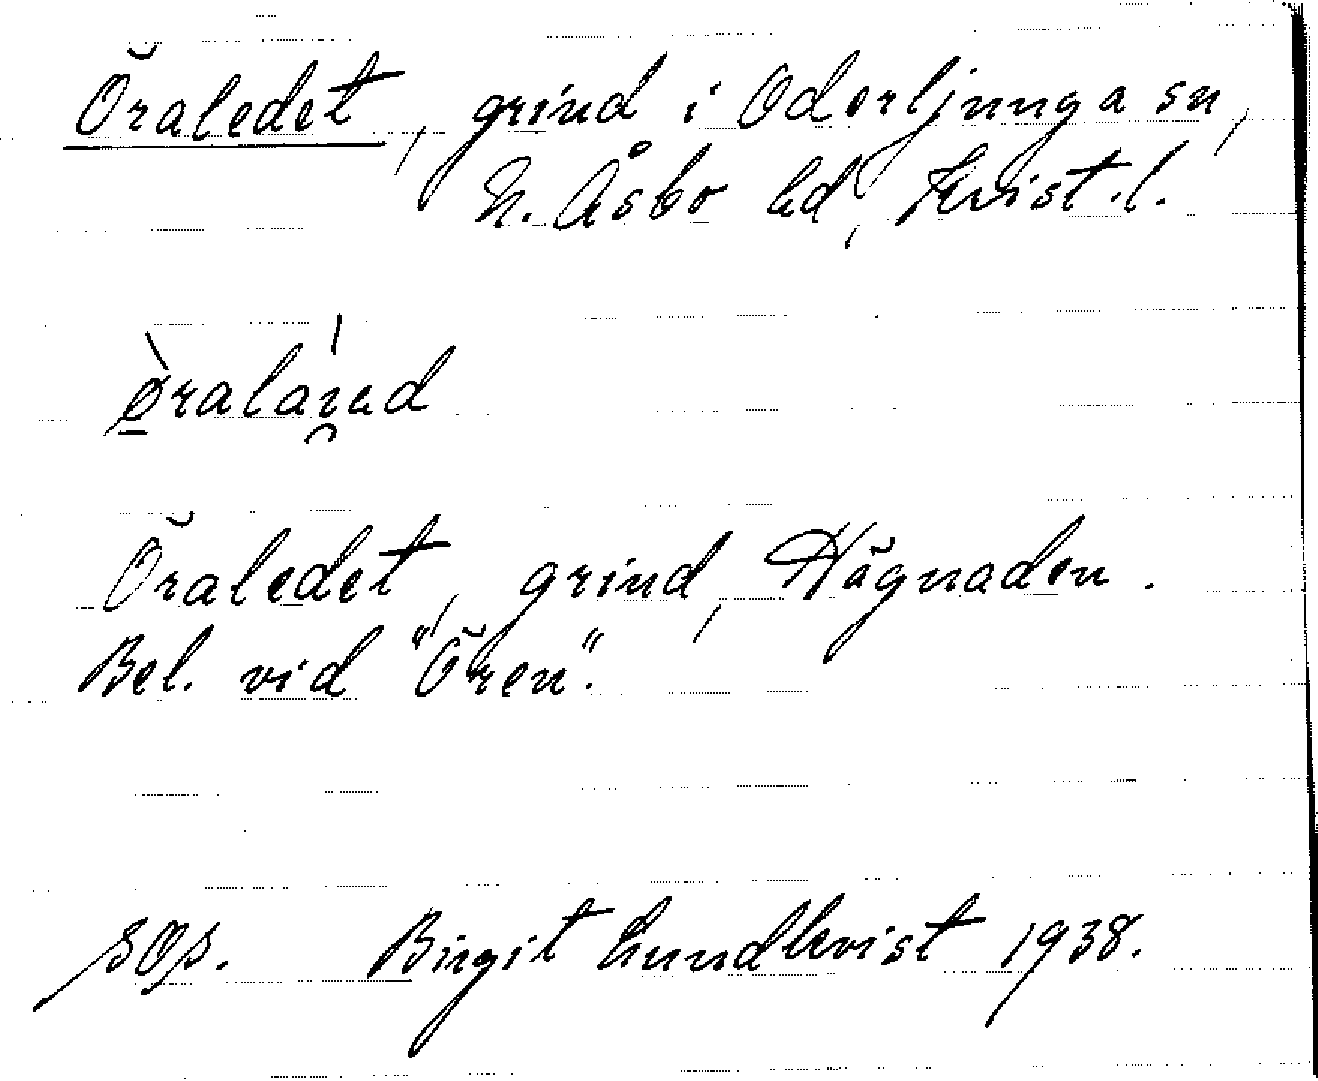 Öraledet, grind i Oderljunga sn,
N. Åsbo hd, Krist.l.
Öraledet, grind, Hägnaden.
Bel. vid "Ören".
sOs. Birgit Lundkvist 1938.